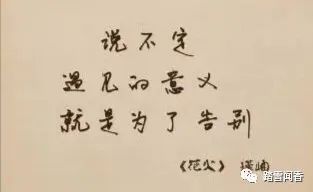 说不定
遇见的意义
就是为了告别
《花火》
踏雪闻香